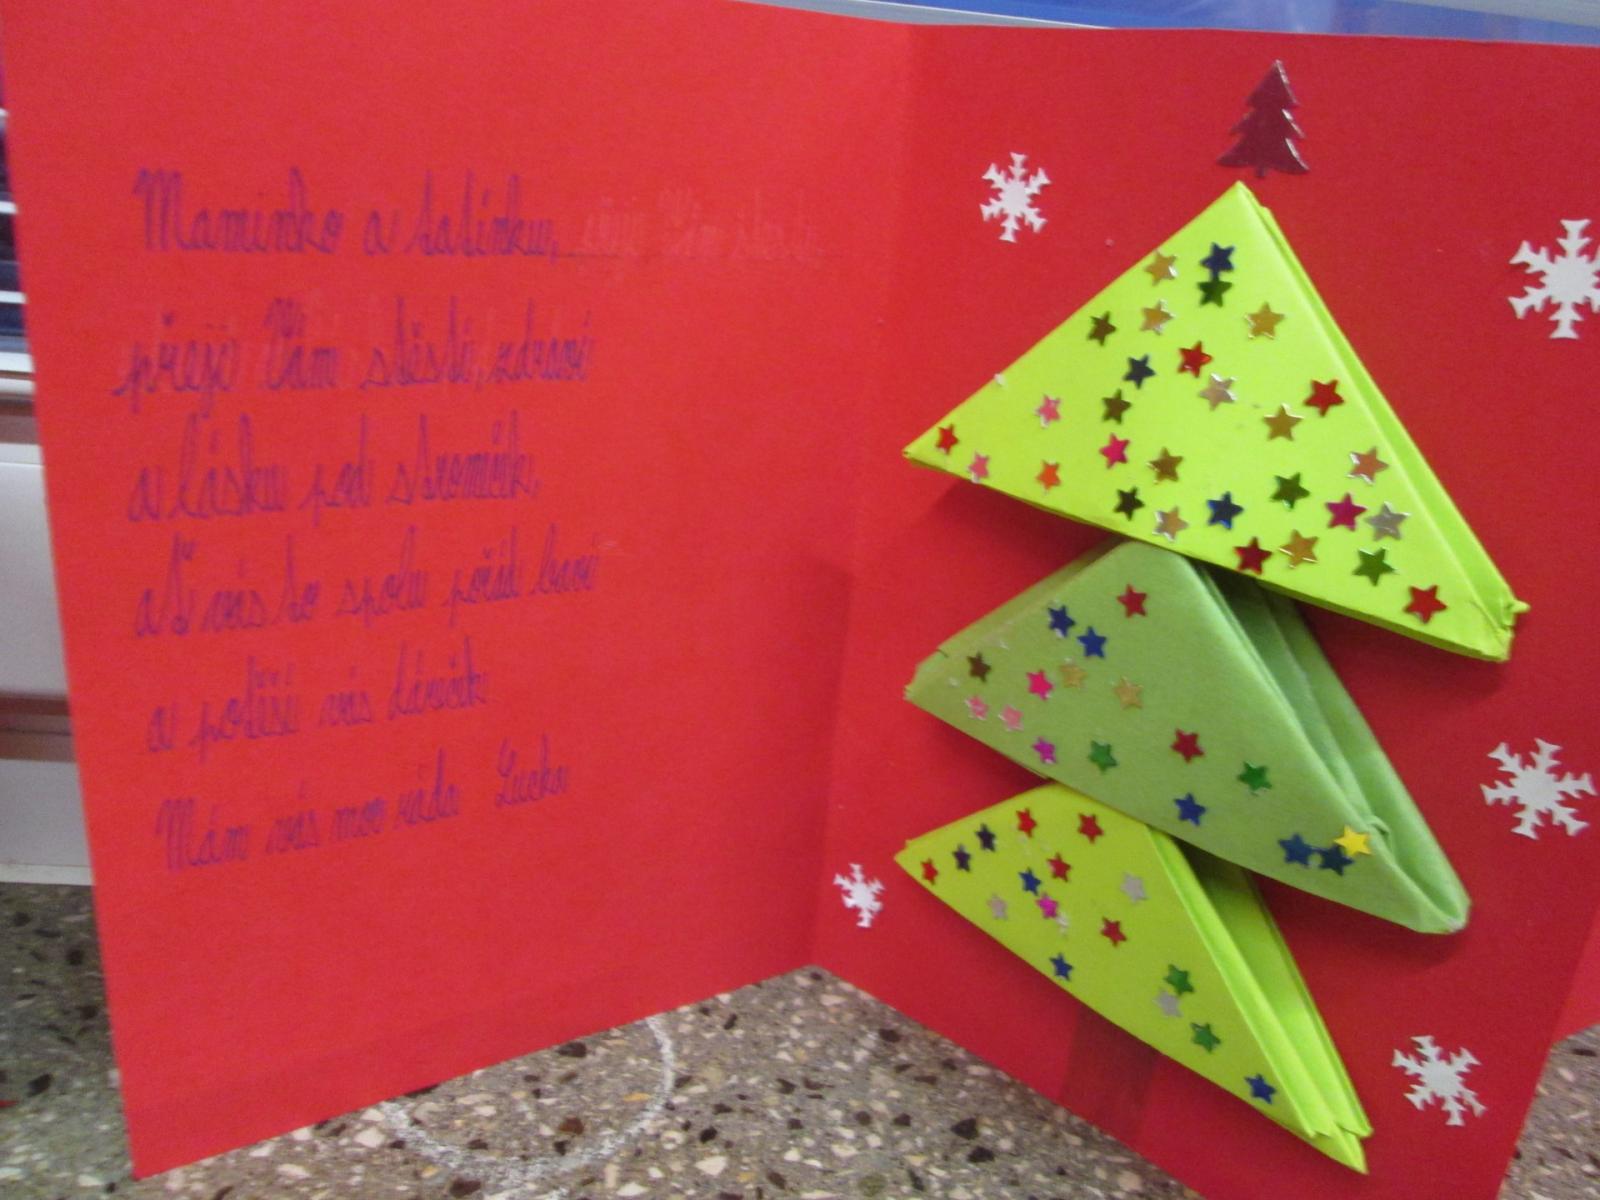 Maminko a tatínku, přeji Vám štěstí
přeji Vám štěstí, zdraví
a lásku pod stromček,
ať vás to spolu pořád baví
a potěší vás dáreček
Mám vás moc ráda Lucka